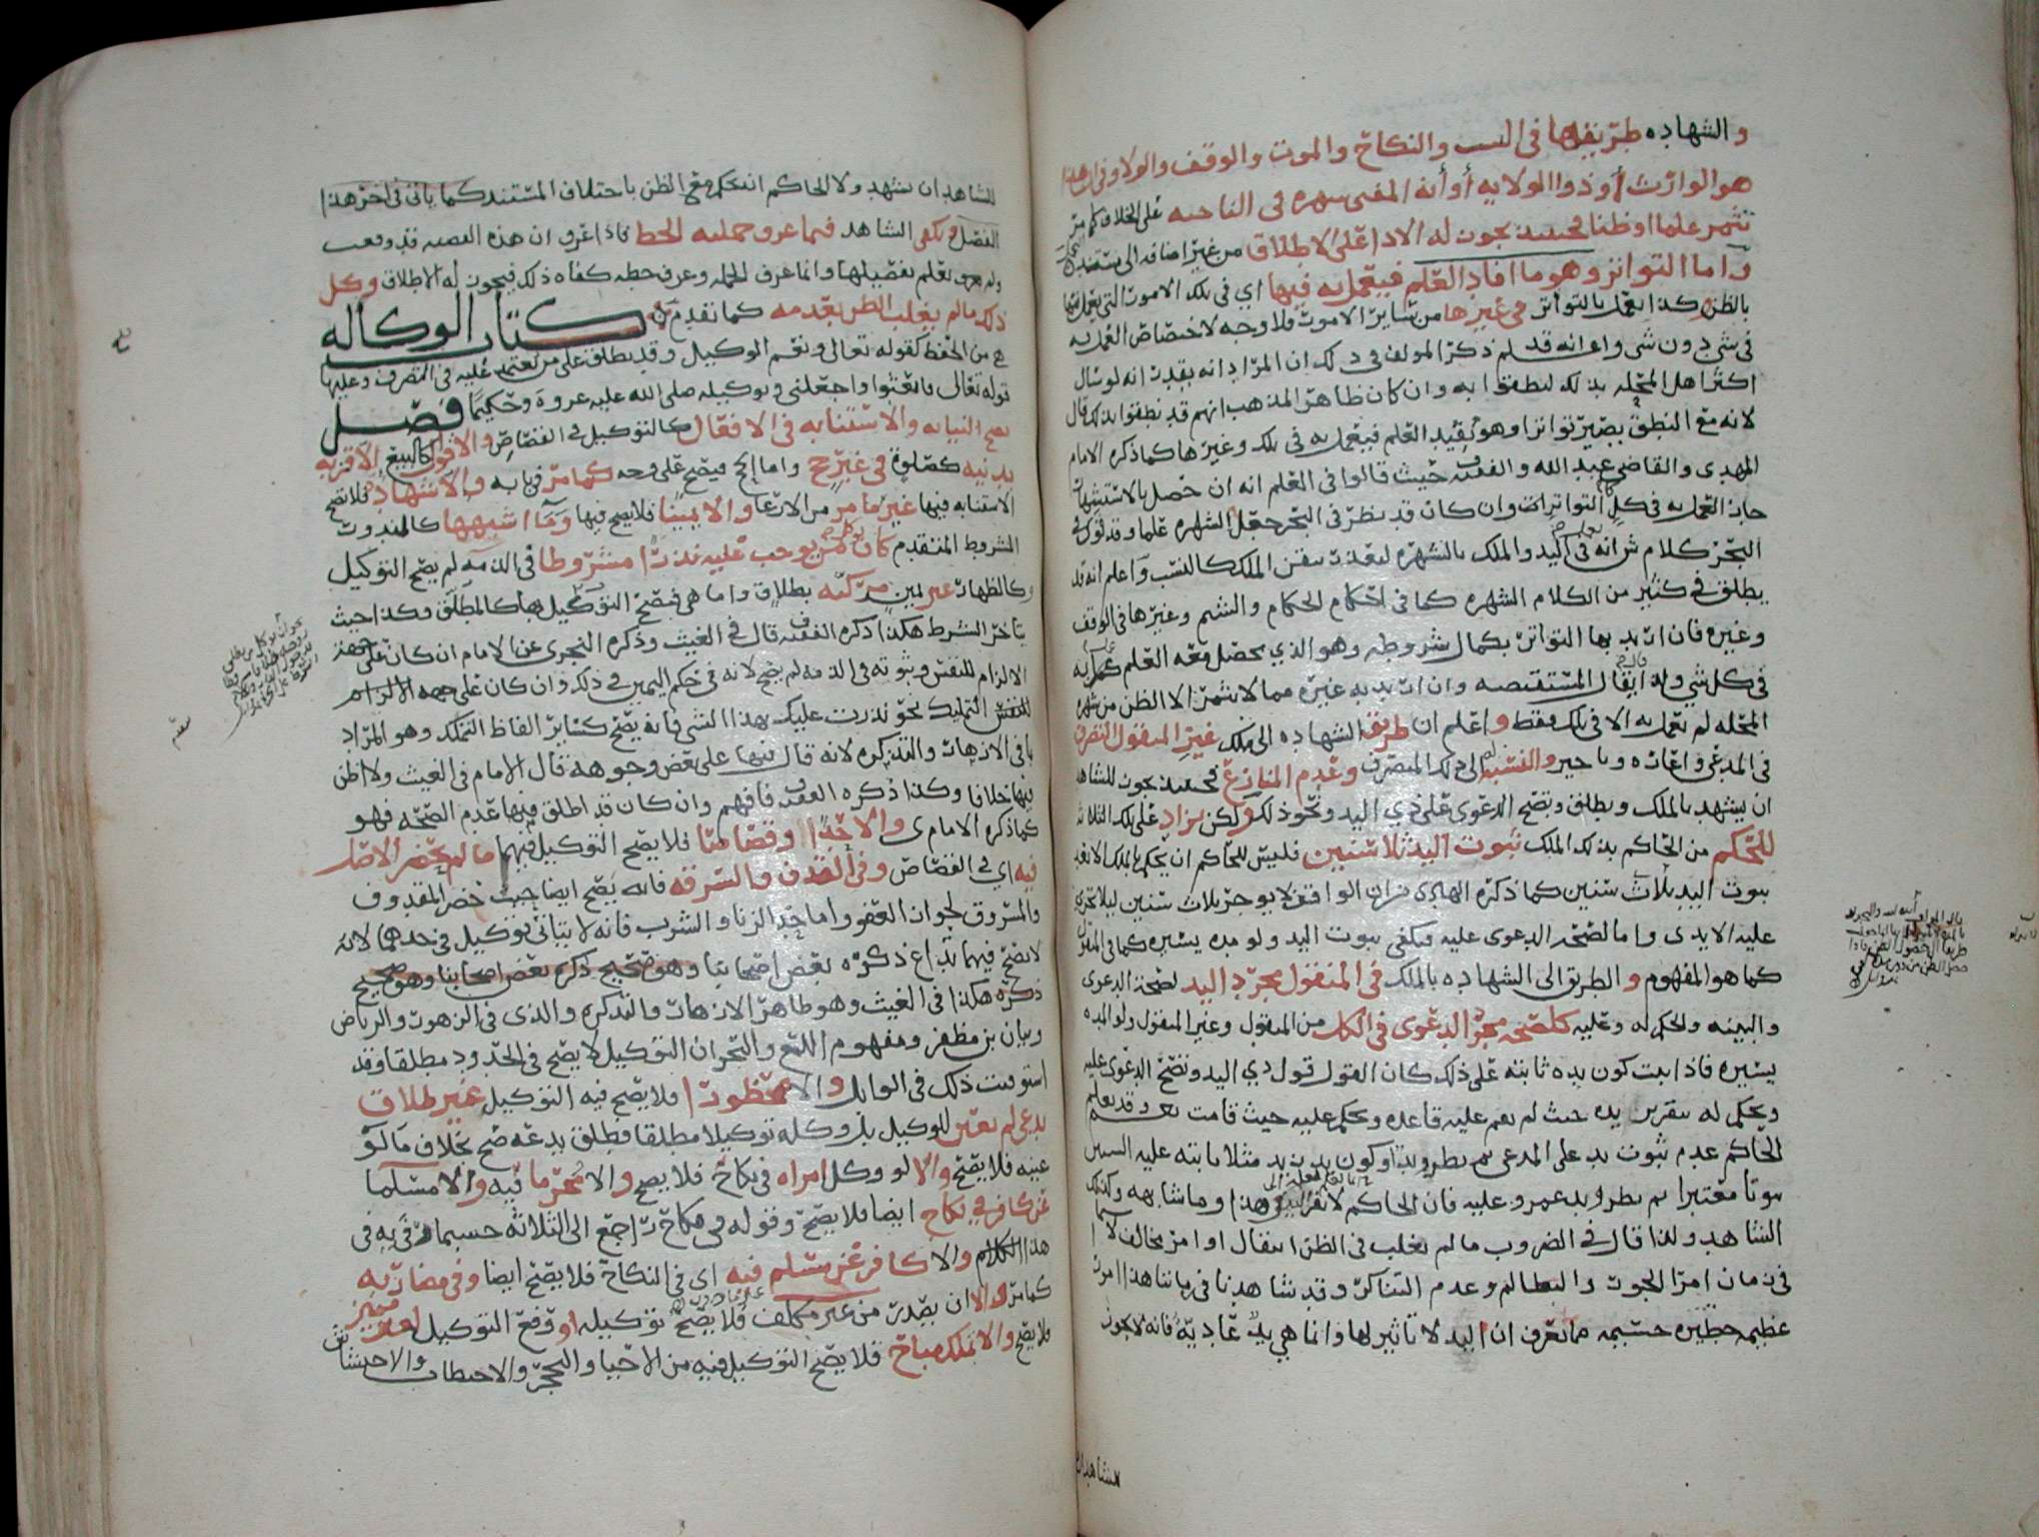 والشهاده طريقها في النسب والنكاح والموت والوقف والولا وفي ان هذا
هو الوارث أو ذوا الولايه أو أنه المفتي شهره في الناحيه على الخلاف كما مر
تثمر علما او ظنا فحينئذ يجوز له الادا على الاطلاق من غير اضافه الى مستنده
وأما التواتر وهو ما افاد العلم فيعمل به فيها اي في تلك الامور التي يعمل فيها
بالظن وكذا يعمل بالتواتر في غيرها من سائر الامور فلا وجه لاختصاص العمل به
في شي دون شي واعلم انه قد ذكر المولف في ذلك ان المراد انه بقدر انه لو سال
اكثر اهل المحله بذلك لنطقوا به وان كان ظاهر المذهب انهم قد نطقوا بذلك قال
لانه مع النطق يصير تواترا وهو يفيد العلم فيعمل به في تلك وغيرها كما ذكره الامام
المهدي والقاضي عبد الله والفقيه ف حيث قالوا في العلم انه ان حصل بالاستشهار
جاز العمل به في كل التواتر وان كان قد نظر في البحر جعل الشهره علما وقد تؤول في
البحر كلام ش انه في اليد والملك بالشهره لتعذر تيقن الملك كالنسب وأعلم انه قد
يطلق في كثير من الكلام الشهره كما في احكام الحكام والنسم وغيرها في الوقف
وغيره فان اريد بها التواتر بكمال شروطه وهو الذي يحصل معه العلم عمل به
في كل شي ولذا يقال المستفيضه وان اريد به غيره مما لا يثمر الا الظن من شهره
المحله لم يعمل به الا في تلك فقط واعلم ان طريق الشهاده الى ملك غير المنقول التصرف
في المدعى واعاره وتاجير والنسبه الى ذلك المتصرف وعدم المنازع فحينئذ يجوز للشاهد
ان يشهد بالملك ويطلق وتصح الدعوى على ذي اليد ونحو ذلك ولكن يزاد على تلك الثلاثه
للحكم من الحاكم بذلك الملك ثبوت اليد ثلاث سنين فليس للحاكم ان يحكم بالملك الا بعد
ثبوت اليد ثلاث سنين كما ذكره الهادي من ان الواقف لا يوجر ثلاث سنين ليلا تجري
عليه الايدي واما لصحه الدعوى عليه فيكفي ثبوت اليد ولو مده يسيره كما في المنقول
كما هو المفهوم والطريق الى الشهاده بالملك في المنقول مجرد اليد لصحة الدعوى
والبينه والحكم له وعليه كلصحه مجرد الدعوى في الكل من المنقول وغير المنقول ولو المده
يسيره فاذا ثبت كون يده ثابته على ذلك كان القول قول ذي اليد وتصح الدعوى عليه
ويحكم له بتقرير يده حيث لم تقم عليه قاعده ويحكم عليه حيث قامت نعم وقد يعلم
الحاكم عدم ثبوت يد على المدعى ثم يطرو يد او كون يد زيد مثلا ثابته عليه السنين
ثبوتا معتبرا ثم يطرا يد عمرو عليه فان الحاكم لا يقرر اليد في هذا وما شابهه وكذلك
الشاهد ولذا قال في الضروب ما لم يغلب في الظن انتقال او امر مخالف لا سيما
في زمان امرا الجور والتظالم وعدم التناكر وقد شاهدنا في زماننا هذا امور
عظيمه خطيره جسيمه مما يعرف ان اليد لا تاثير لها وانما هي يد عاديه فانه لا يجوز
مشاهد
للشاهد ان يشهد ولا الحاكم ان يحكم مع الظن باختلاف المستند كما ياتي في اخر هذا
الفصل ويكفي الشاهد فيما عرف جملته الخط فاذا عرف ان هذه القصيه قد وقعت
ولم يعلم بتفصيلها وانما عرف الجمله وعرف خطه كفاه ذلك فيجوز له الاطلاق وكل
ذلك ما لم يغلب الظن بعدمه كما تقدم كتاب الوكاله
هي من الحفظ كقوله تعالى ونعم الوكيل وقد يطلق على من يعتمد عليه في التصرف وعليها
قوله تعالى فابعثوا واجعلني وتوكيله صلى الله عليه عروة وحكيما فصل
تصح النيابه والاستنابه في الافعال كالتوكيل في القصاص والاقوال كالبيع الا قربه
بدنيه كصلوة في غير حج واما الحج فيصح على وجه كما مر في بابه والاشهاد فلا تصح
الاستنابه فيها غير ما مر من الارعا والا يمينا فلا يصح فيها وما اشبهها كالنذور
المشروط المتقدم كان من يوجب عليه نذرا مشروطا في الذمه لم يصح التوكيل
وكالظهار غير يمين مركبه بطلاق واما هي فتصح التوكيل بها كالمطلق وكذا حيث
تاخر الشرط هكذا ذكره الفقيه ف قال في الغيث وذكره النجري عن الامام ان كان على جهة
الالزام للنفس وثبوته في الذمه لم يصح لانه في حكم اليمين في ذلك وان كان على جهه الالزام
للنفس التمليك نحو نذرت عليك بهذا الشي فانه يصح كسائر الفاظ التملك وهو المراد
بما في الازهار والتذكره لانه قال فيها على بعض وجوهه قال الامام في الغيث ولا اظن
فيها خلافا وكذا ذكره الفقيه ف فافهم وان كان قد اطلق فيها عدم الصحه فهو
كما ذكره الامام ي والا حدا او قصاصا فلا يصح التوكيل فيهما ما لم يحضر الاصل
فيه اي في القصاص وفي القذف والسرقه فانه يصح ايضا حيث حضر المقذوف
والمسروق لجواز العفو واما حد الزنا والشرب فانه لا يتاتى توكيل في حدهما لانه
لا يصح فيهما تداع ذكره بعض اصحابنا وهو صحيح ذكره بعض اصحابنا وهو صحيح
ذكره هكذا في الغيث وهو ظاهر الازهار والتذكره والذي في الزهور والرياض
وبيان بن مظفر ومفهوم اللمع والبحر ان التوكيل لا يصح في الحدود مطلقا وقد
استوفيت ذلك في الوابل والا محظورا فلا يصح فيه التوكيل غير طلاق
بدعي لم يعين للوكيل بل وكله توكيلا مطلقا فطلق بدعه صح بخلاف ما لو
عينه فلا يصح والا لو وكل امراه في نكاح فلا يصح والا محرما فيه والا مسلما
عن كافر في نكاح ايضا فلا يصح وقوله في نكاح راجع الى الثلاثه حسبما وفي به في
هذا الكلام والا كافر عن مسلم فيه اي في النكاح فلا يصح ايضا وفي مضاربه
كما مر والا ان يصدر من غير مكلف فلا يصح توكيله او وقع التوكيل لغير مميز
فلا يصح والا بتملك مباح فلا يصح التوكيل فيه من الاحيا والتحجر والاحتطاب والاحتشاش